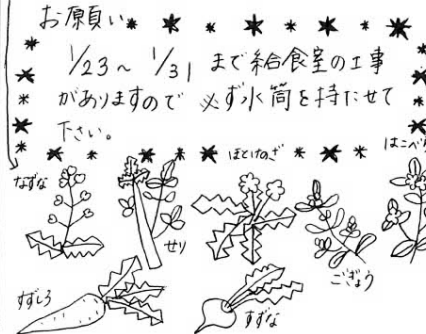 お願い
1/23～1/31 まで給食室の工事
がありますので 必ず水筒を持たせて
下さい。
はこべら
ほとけのざ
なずな
せり
ごぎょう
すずしろ
すずな